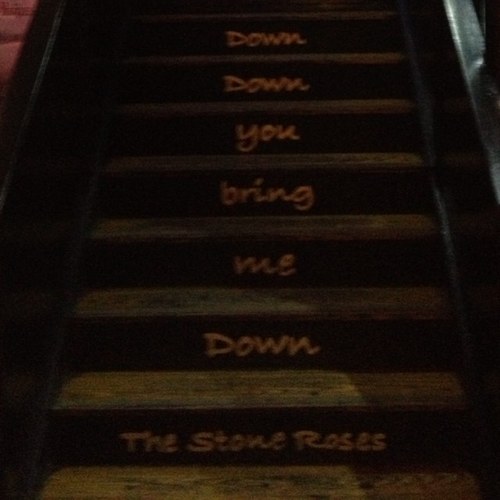 Down
Down
you
bring
me
Down
The Stone Roses